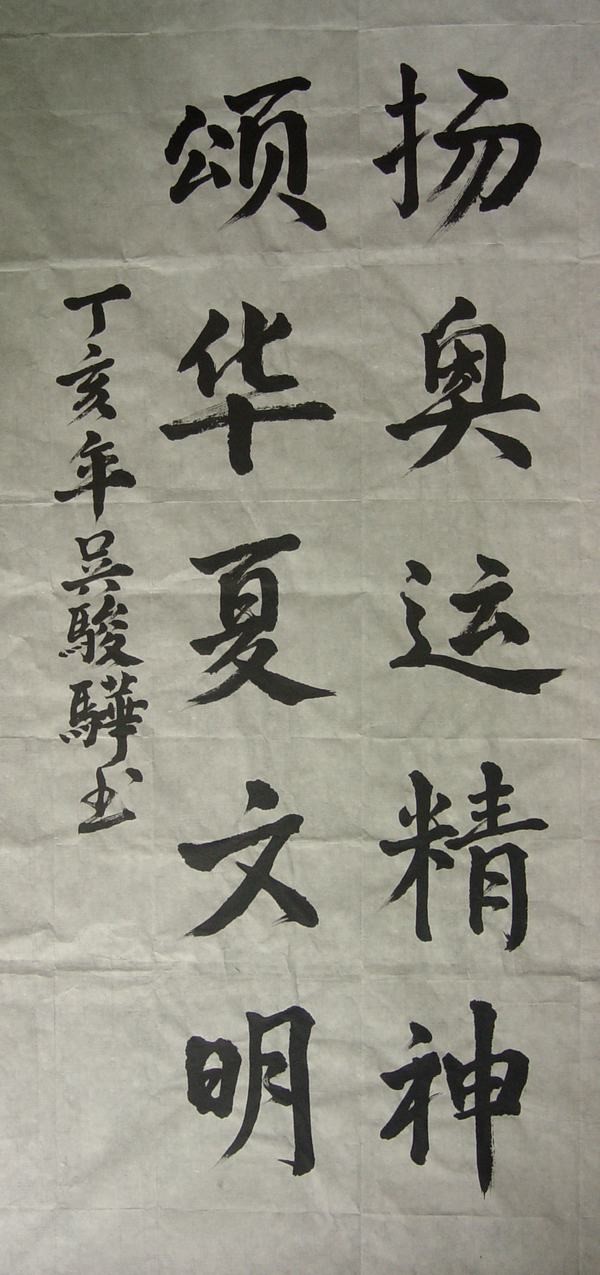 扬奥运精神
颂华夏文明
丁亥年吴駿驊书